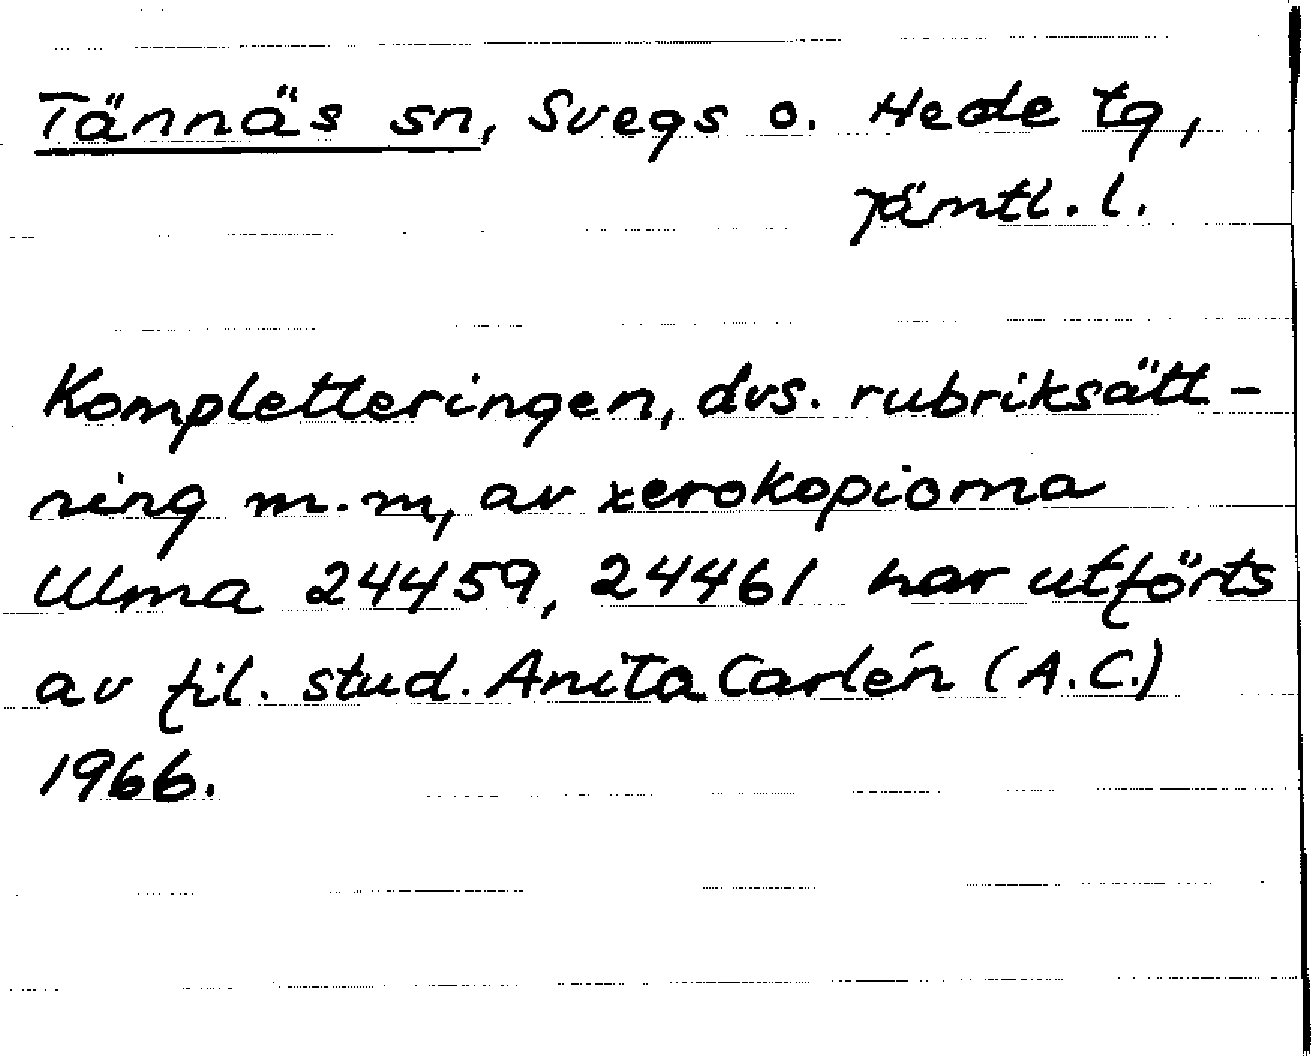 Tännäs sn, Svegs o. Hede tg,
Jämtl. l.
Kompletteringen, dvs. rubriksätt-
ning m.m, av xerokopiorna
Ulma 24459, 24461 har utförts
av fil. stud. Anita Carlén (A.C.)
1966.